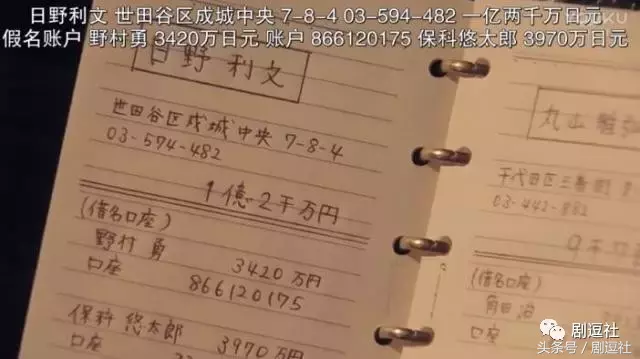 日野利文 世田谷区成城中央 7-8-4 03-594-482 一亿两千万日元
假名账户 野村勇 3420万日元 账户 866120175 保科悠太郎 3970万日元
日野 利文
世田谷区成城中央 7-8-4
03-574-482
1億2千万円
(借名口座)
野村 勇 3420万円
口座 866120175
保科 悠太郎 3970万円
口座
丸山
千代田区三番町
03-442-882
9千万
(借名口座)
角田 治
口座
剧逗社
头条号／剧逗社